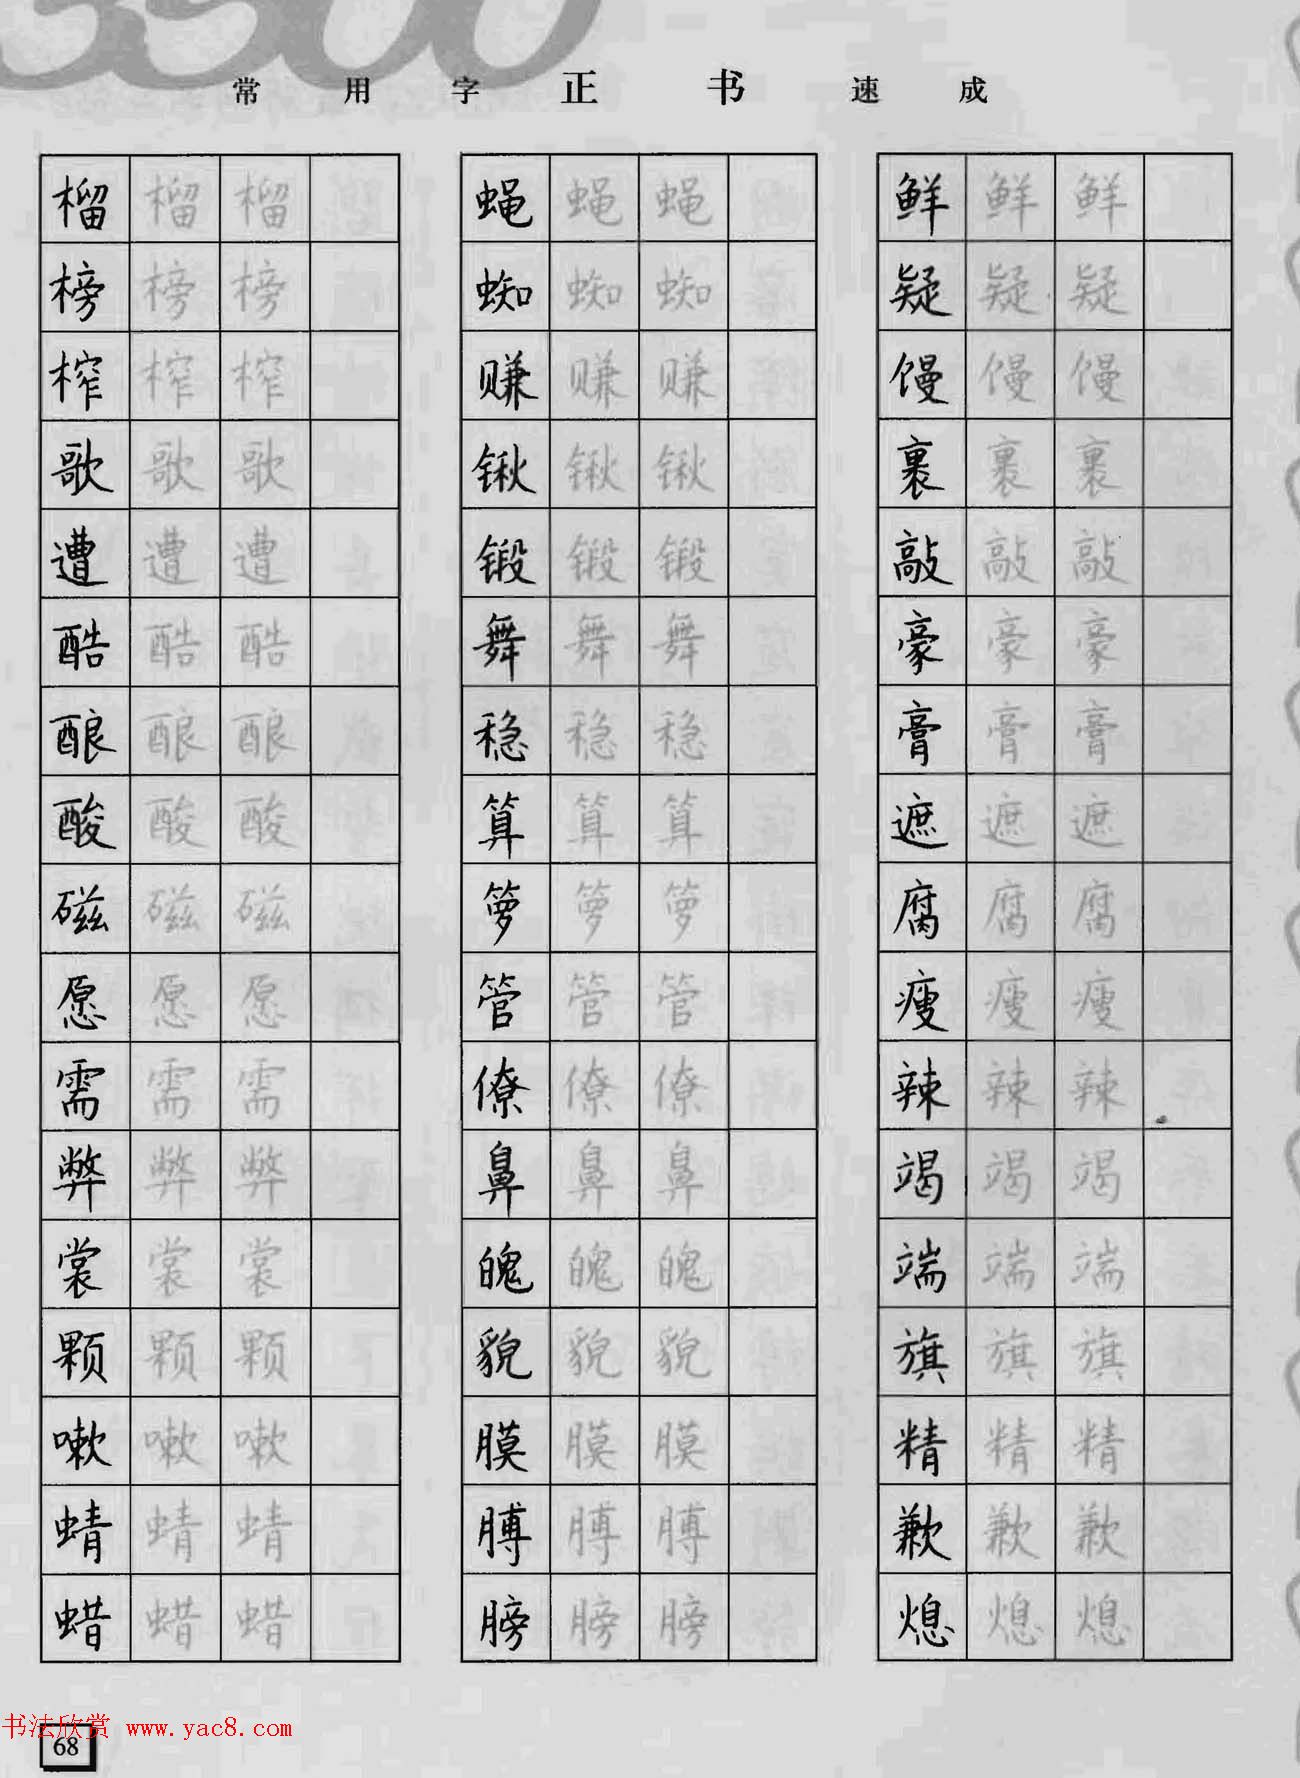 3500
常用字正书速成
榴榴榴 蝇蝇蝇 鲜鲜鲜
榜榜榜 蜘蜘蜘 疑疑疑
榨榨榨 赚赚赚 馒馒馒
歌歌歌 锹锹锹 裹裹裹
遭遭遭 锻锻锻 敲敲敲
酷酷酷 舞舞舞 豪豪豪
酿酿酿 稳稳稳 膏膏膏
酸酸酸 算算算 遮遮遮
磁磁磁 箩箩箩 腐腐腐
愿愿愿 管管管 瘦瘦瘦
需需需 僚僚僚 辣辣辣
弊弊弊 鼻鼻鼻 竭竭竭
裳裳裳 魄魄魄 端端端
颗颗颗 貌貌貌 旗旗旗
嗽嗽嗽 膜膜膜 精精精
蜻蜻蜻 膊膊膊 歉歉歉
蜡蜡蜡 膀膀膀 熄熄熄
书法欣赏 www.yac8.com
68